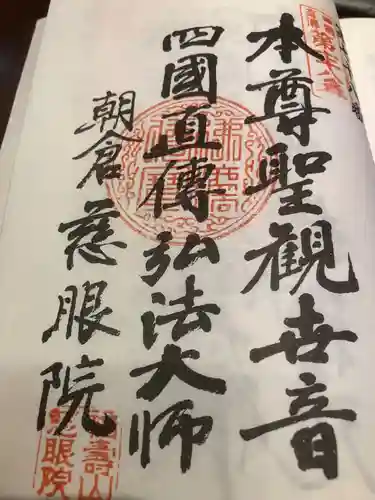 本尊聖観世音
四國直傳弘法大师
朝倉慈眼院
壽山
慈眼院